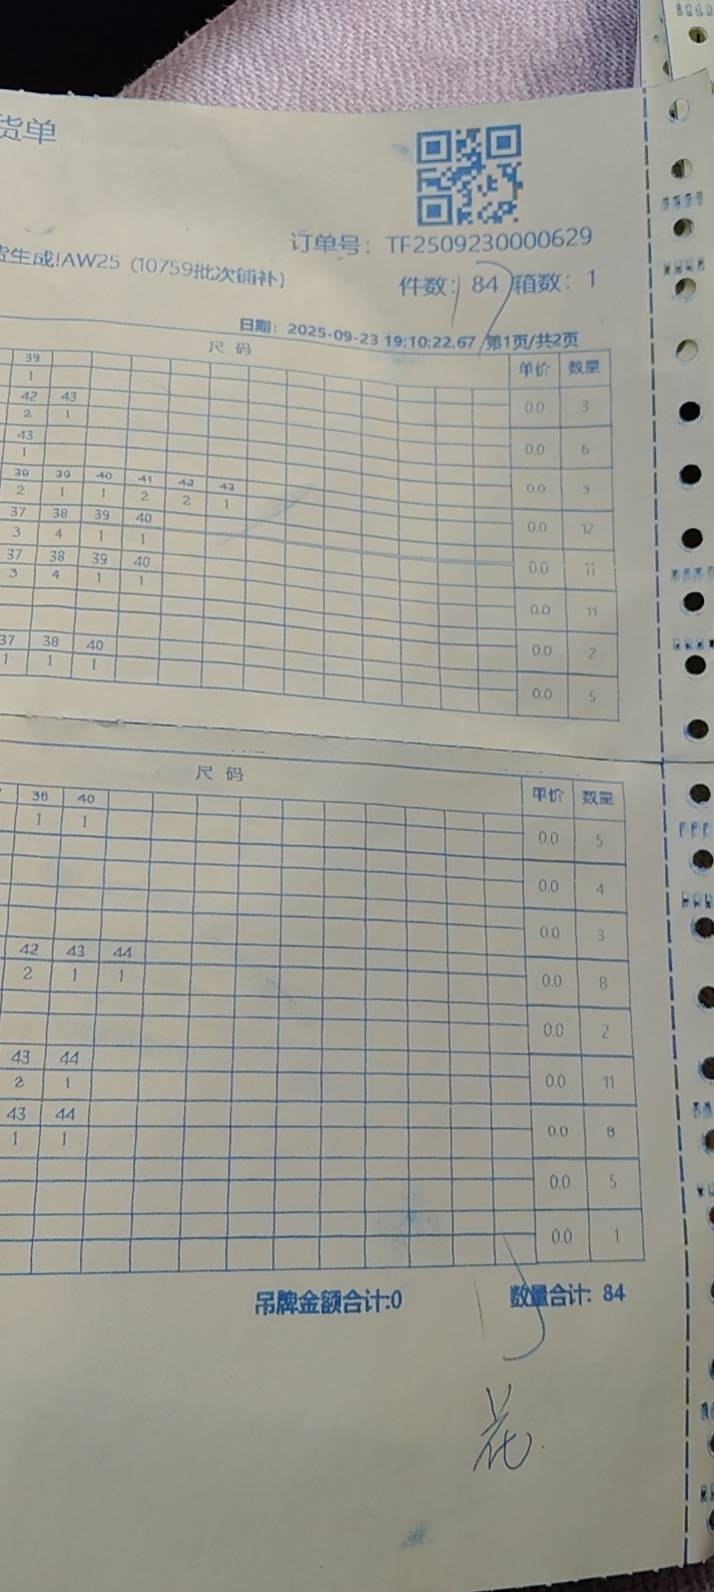 货单
订单号: TF2509230000629
货生成!AW25 (10759批次铺补)
件数: 84 箱数: 1
日期: 2025-09-23 19:10:22.67 第1页/共2页
尺 码 单价 数量
39
1 0.0 3
42 43
2 1 0.0 6
43
1 0.0 3
39 40 41 42 43
2 1 1 2 2 1 0.0 12
37 38 39 40
3 4 1 1 0.0 11
37 38 39 40
3 4 1 1 0.0 11
0.0 2
37 38 40
1 1 1 0.0 5
尺 码 单价 数量
38 40
1 1 0.0 5
0.0 4
0.0 3
42 43 44
2 1 1 0.0 8
0.0 2
43 44
2 1 0.0 11
43 44
1 1 0.0 8
0.0 5
0.0 1
吊牌金额合计:0 数量合计: 84
花